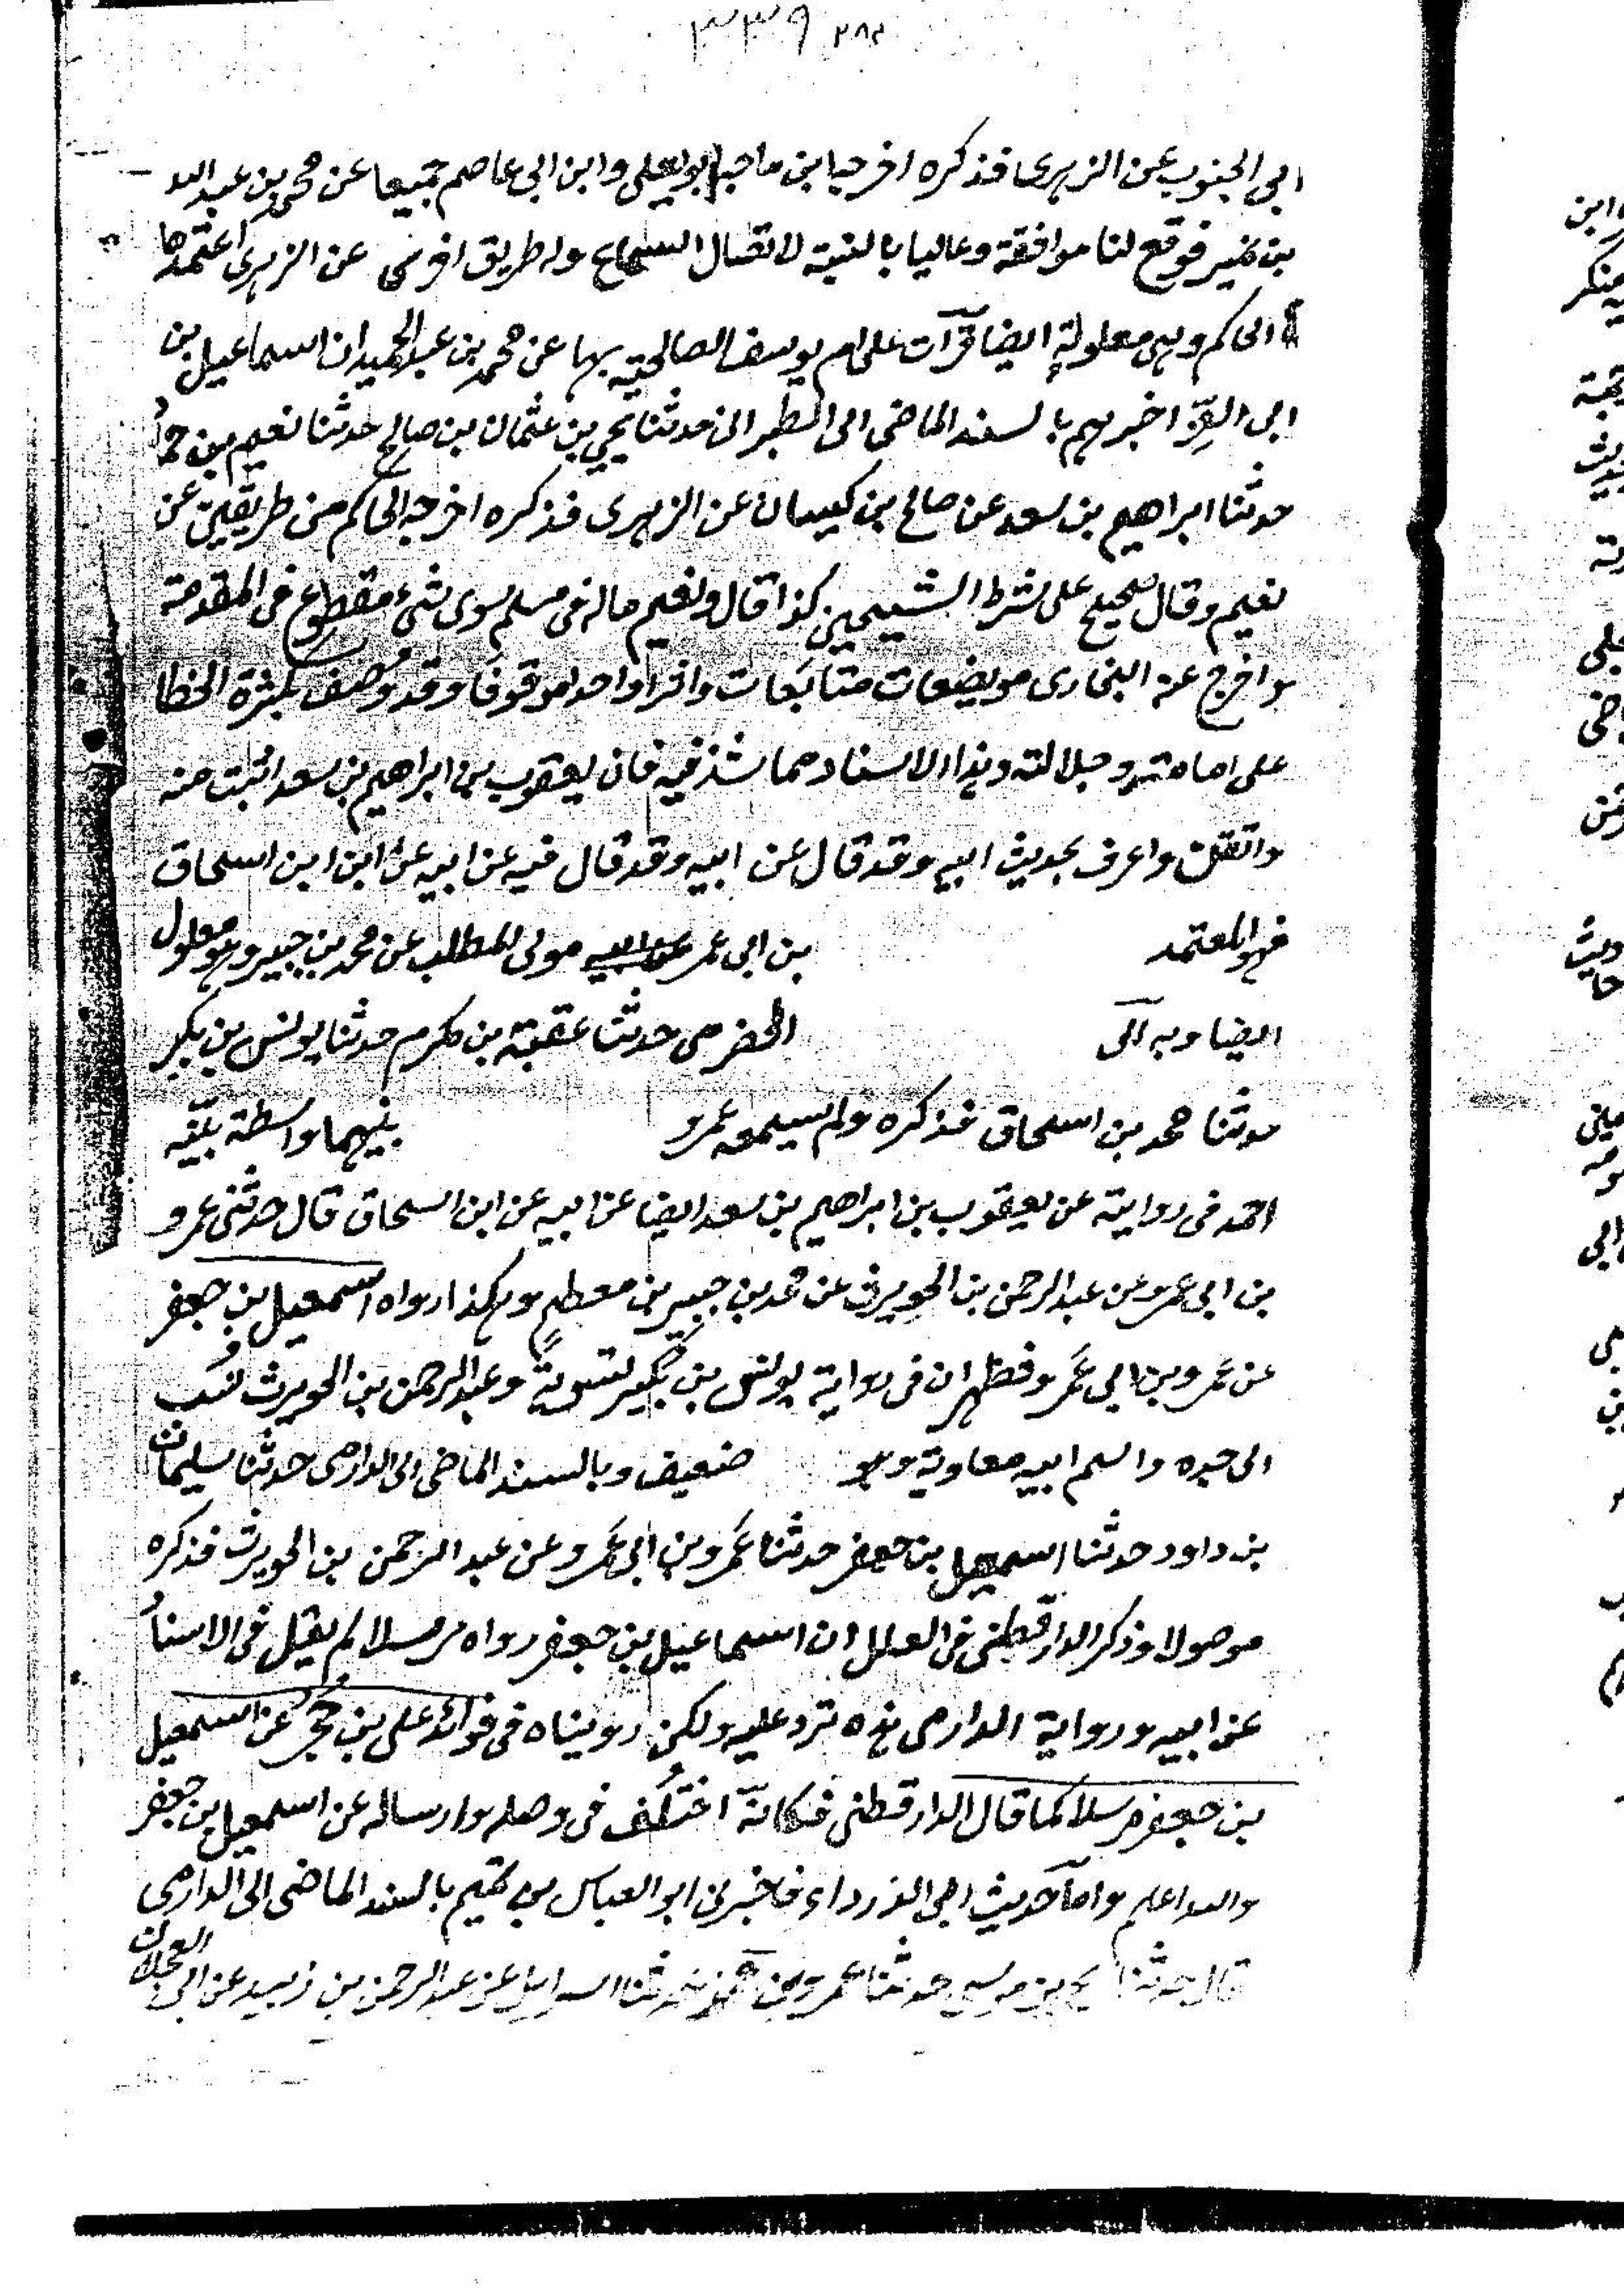 ٣٣٩ ٢٨٢
ابى الجنوب عن الزهرى فذكره اخرجه ابن ماجه وابو يعلى وابن ابى عاصم جميعا عن محمد بن عبد الله
بن نمير فوقع لنا موافقة وعاليا بالنسبة لاتصال السماع وله طريق اخرى عن الزهرى اعتمدها
الحاكم وهى معلولة ايضا قرأت على ام يوسف الصالحية بها عن محمد بن عبد الحميد ان اسماعيل بن
ابى العز اخبرهم بالسند الماضى الى الطبرانى حدثنا يحيى بن عثمان بن صالح حدثنا نعيم بن حماد
حدثنا ابراهيم بن سعد عن صالح بن كيسان عن الزهرى فذكره اخرجه الحاكم من طريقين عن
نعيم وقال صحيح على شرط الشيخين كذا قال ونعيم ماله فى مسلم سوى شىء مقطوع فى المقدمة
واخرج عنه البخارى مويضعات متابعات وافراد احدا موقوفا وقد وصف بكثرة الخطا
على امامته وجلالته وهذا الاسناد مما شذ فيه فان يعقوب بن ابراهيم بن سعد اثبت منه
واتقن واعرف بحديث ابيه وقد قال عن ابيه وقد قال فيه عن ابيه عن ابن ابن اسحاق
فهو المعتمد بن ابى عمر عن ابيه مولى المطلب عن محمد بن جبير وهو معلول
ايضا وبه الى الحضرمى حدثنا عقبة بن مكرم حدثنا يونس بن بكير
حدثنا محمد بن اسحاق فذكره ولم يسمعه عمرو بينهما واسطة بيّنه
احمد فى رواية عن يعقوب بن ابراهيم بن سعد ايضا عن ابيه عن ابن اسحاق قال حدثنى عمرو
بن ابى عمرو عن عبد الرحمن بن الحويرث عن محمد بن جبير بن مطعم وهكذا رواه اسمعيل بن جعفر
عن عمرو بن ابى عمرو فظهر ان فى رواية يونس بن بكير تسوية وعبد الرحمن بن الحويرث نُسب
الى جده واسم ابيه معاوية وهو ضعيف وبالسند الماضى الى الدارمى حدثنا سليمان
بن داود حدثنا اسمعيل بن جعفر حدثنا عمرو بن ابى عمرو عن عبد الرحمن بن الحويرث فذكره
موصولا وذكر الدارقطنى فى العلل ان اسماعيل بن جعفر رواه مرسلا لم يقل فى الاسناد
عن ابيه ورواية الدارمى هذه ترد عليه ولكن رويناه فى فوائد على بن حُجْر عن اسمعيل
بن جعفر مرسلا كما قال الدارقطنى فكانه اختُلف فى وصله وارساله عن اسمعيل بن جعفر
والله اعلم واما حديث ابى الدرداء فاخبرنى ابو العباس بن تميم بالسند الماضى الى الدارمى
قال حدثنا يحيى بن موسى حدثنا عمرو بن محمد حدثنا اسرايل عن عبد الرحمن بن زبيد عن ابى العجلان